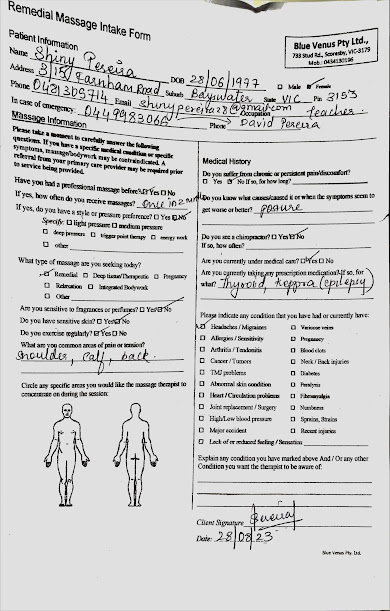 Remedial Massage Intake Form
Blue Venus Pty Ltd.,
733 Stud Rd., Scoresby, VIC-3179
Mob.: 0434130196
Patient Information
Name Shiny Pereira
Address 3/15 Farnham Road DOB 28/06/1977 Male Female
Phone 0421309714 Email shinypereira28@gmail.com Suburb Bayswater State VIC Pin 3153
In case of emergency 0449983066 Phone David Pereira Occupation teacher
Massage Information
Please take a moment to carefully answer the following
questions. If you have a specific medical condition or specific
symptoms, massage/bodywork may be contraindicated. A
referral from your primary care provider may be required prior
to service being provided.
Have you had a professional massage before? Yes No
If yes, how often do you receive massages? once in 2
If yes, do you have a style or pressure preference? Yes No
Specify: light pressure medium pressure
deep pressure trigger point therapy energy work
other
What type of massage are you seeking today?
Remedial Deep tissue/therapeutic Pregnancy
Relaxation Integrated Bodywork
Other
Are you sensitive to fragrances or perfumes? Yes No
Do you have sensitive skin? Yes No
Do you exercise regularly? Yes No
What are you common areas of pain or tension?
shoulder, calf, back.
Circle any specific areas you would like the massage therapist to
concentrate on during the session:
Medical History
Do you suffer from chronic or persistent pain/discomfort?
Yes No If so, for how long?
Do you know what causes/caused it or when the symptoms seem to
get worse or better? posture
Do you see a chiropractor? Yes No
If so, how often?
Are you currently under medical care? Yes No
Are you currently taking any prescription medication? If so, for
what? Thyroid, keppra (epilepsy)
Please indicate any condition that you have had or currently have:
Headaches / Migraines Varicose veins
Allergies / Sensitivity Pregnancy
Arthritis / Tendonitis Blood clots
Cancer / Tumors Neck / Back injuries
TMJ problems Diabetes
Abnormal skin condition Paralysis
Heart / Circulation problems Fibromyalgia
Joint replacement / Surgery Numbness
High/Low blood pressure Sprains, Strains
Major accident Recent injuries
Lack of or reduced feeling / Sensation
Explain any condition you have marked above And / Or any other
Condition you want the therapist to be aware of:
Client Signature Pereira
Date: 28/08/23
Blue Venus Pty. Ltd.